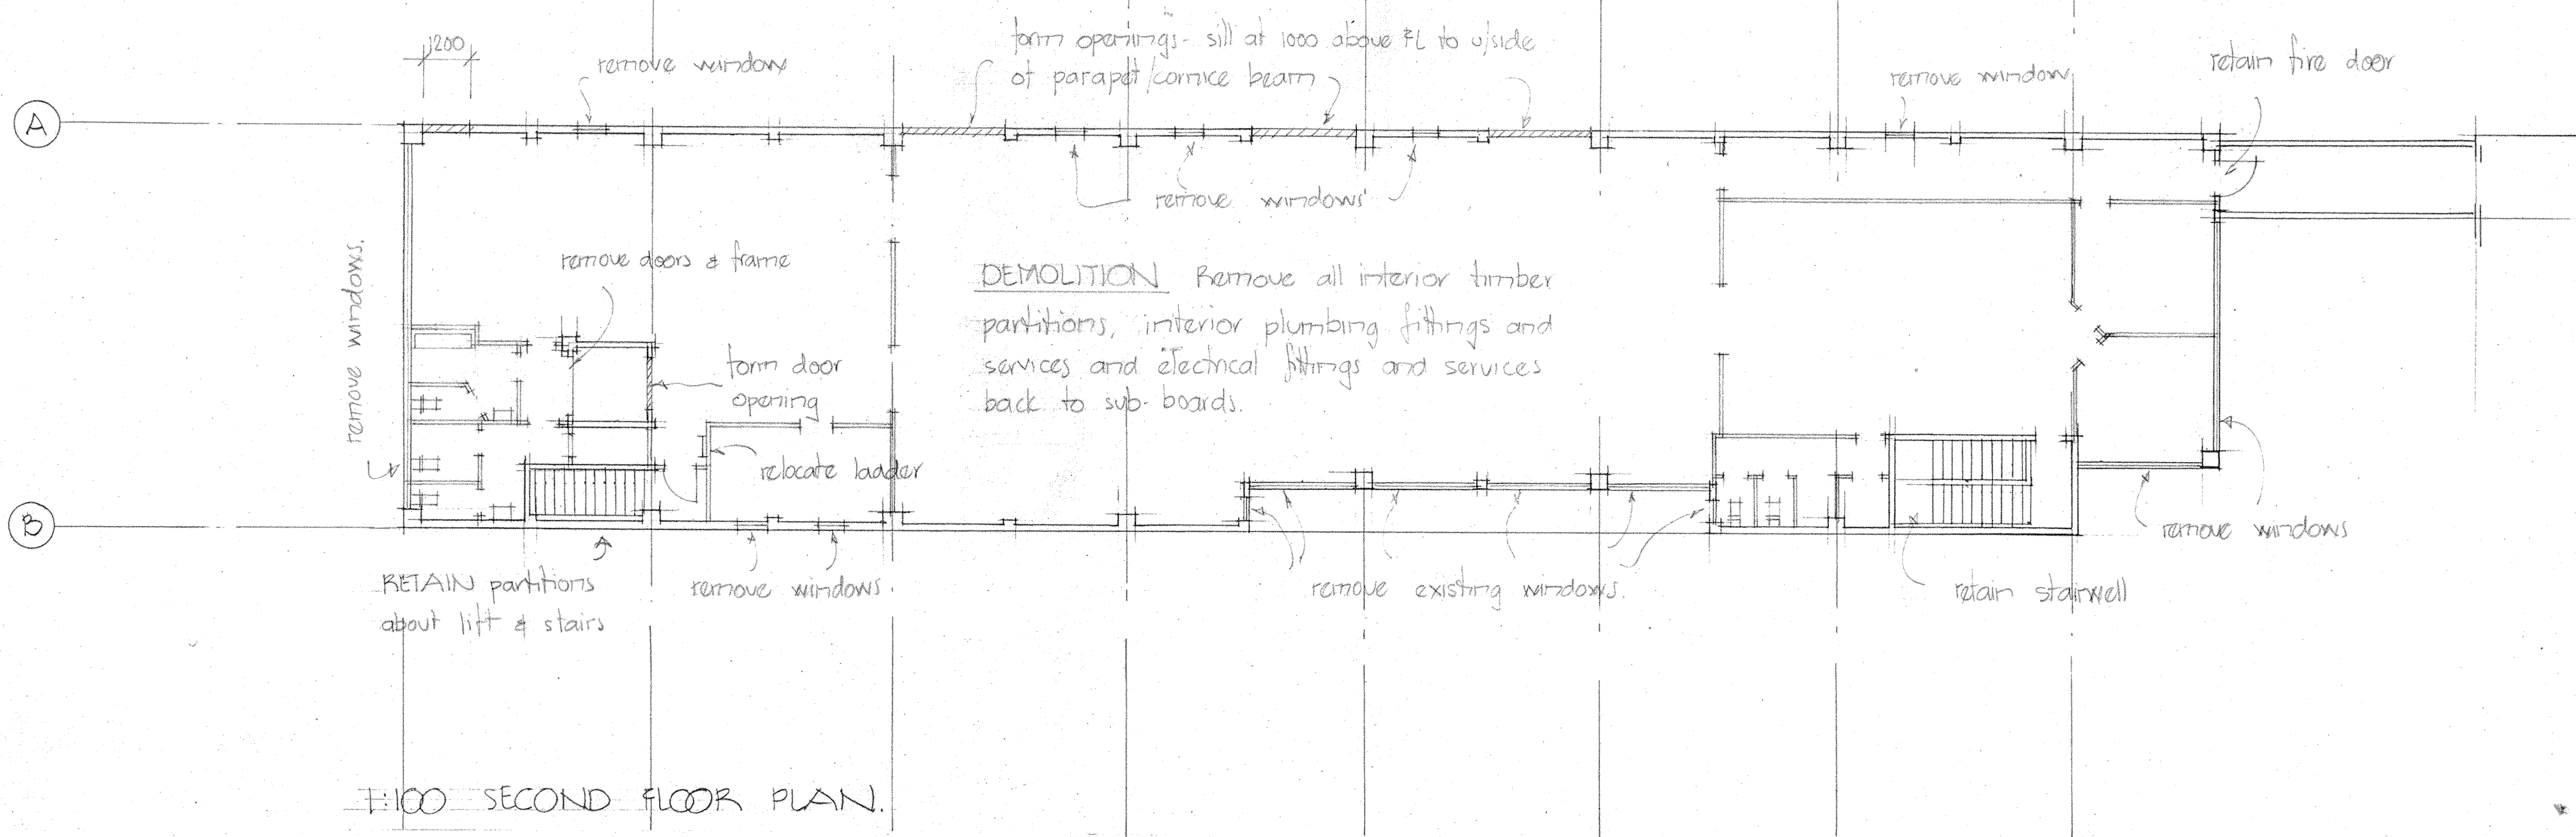 1200
remove window
form openings- sill at 1000 above FL to u/side
of parapet/cornice beam
remove window
retain fire door
A
remove windows
remove windows.
remove doors & frame
DEMOLITION Remove all interior timber
partitions, interior plumbing fittings and
services and electrical fittings and services
back to sub-boards.
form door
opening
relocate ladder
B
RETAIN partitions
about lift & stairs
remove windows.
remove existing windows.
retain stairwell
remove windows
1:100 SECOND FLOOR PLAN.